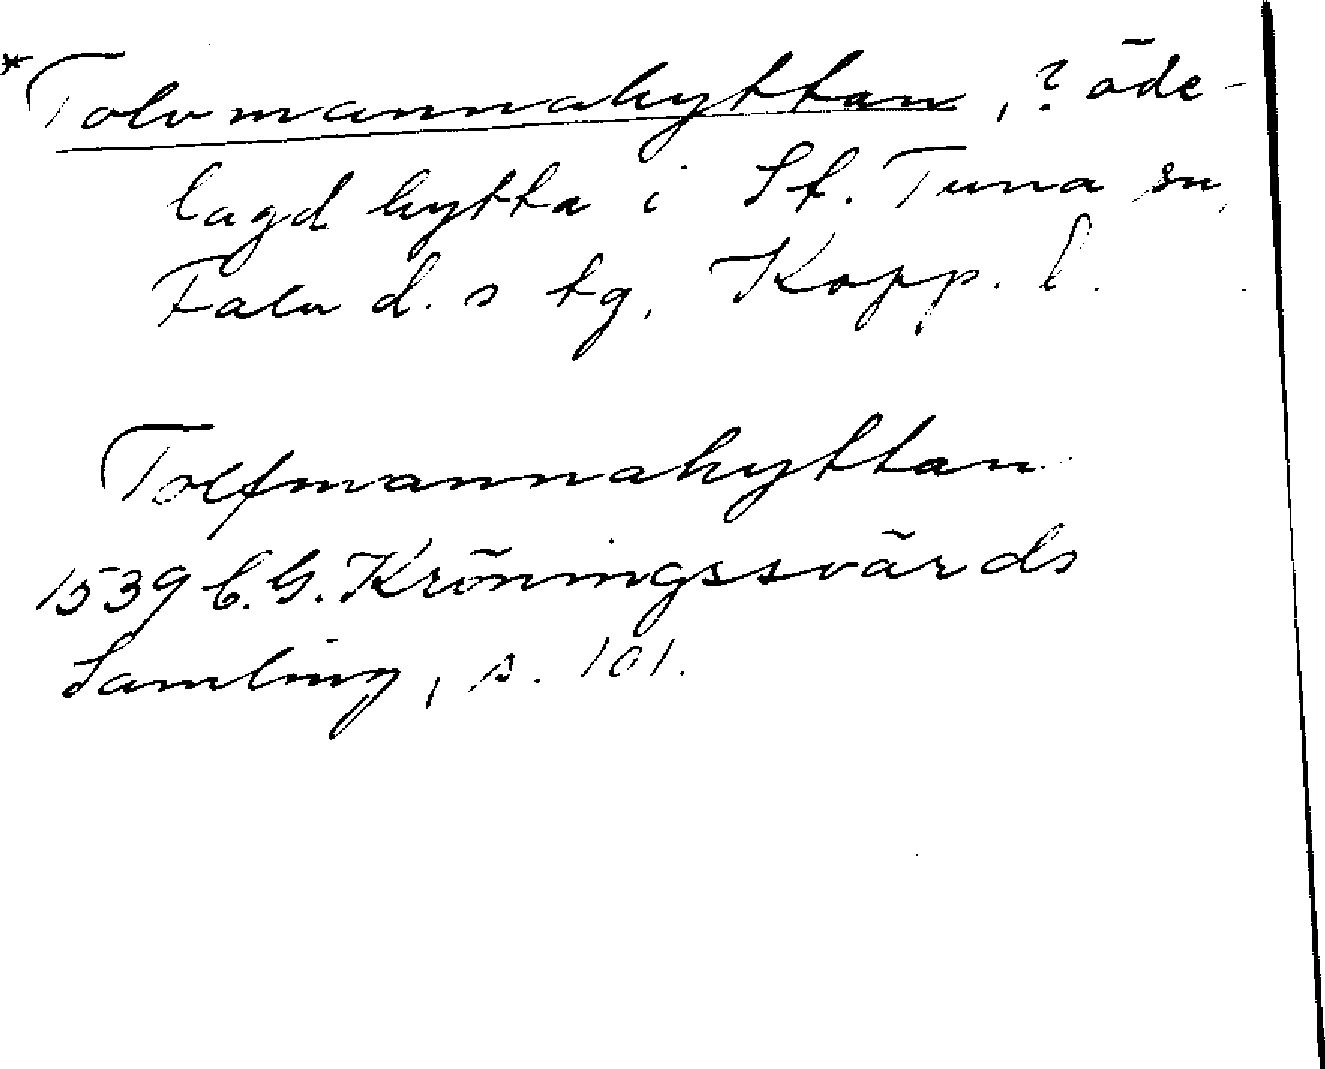 *Tolvmannahyttan, ? öde-
lagd hytta i St. Tuna sn,
Falu d. s tg, Kopp. l.
Tolfmannahyttan
1539 C.G. Kröningssvärds
Samling, s. 101.